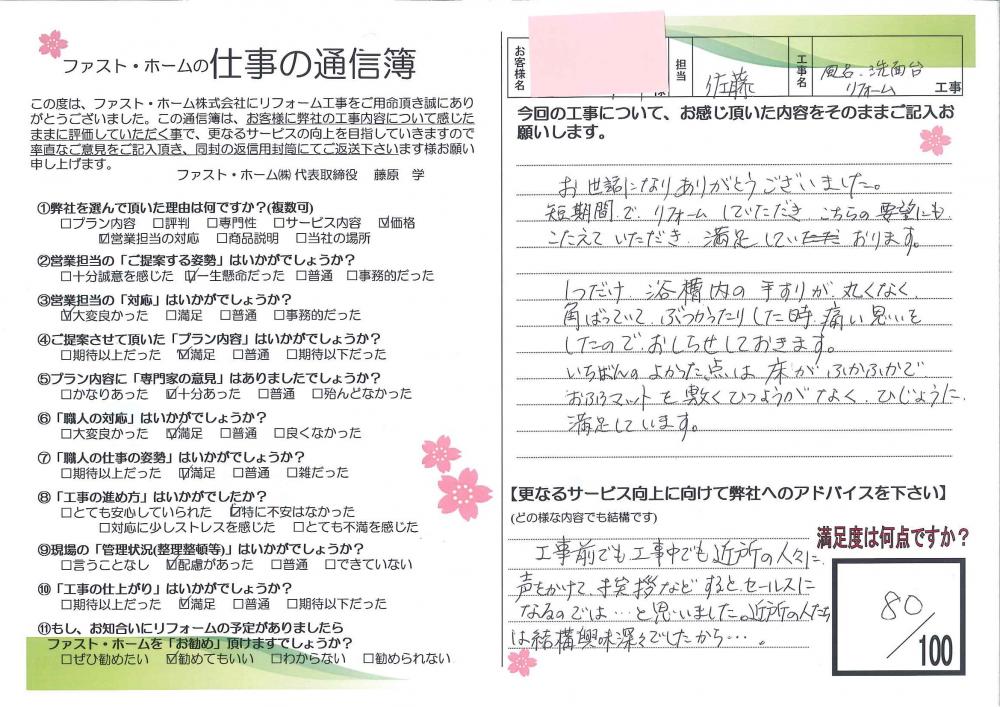 ファスト・ホームの仕事の通信簿
この度は、ファスト・ホーム株式会社にリフォーム工事をご用命頂き誠にあり
がとうございました。この通信簿は、お客様に弊社の工事内容について感じた
ままに評価していただく事で、更なるサービスの向上を目指していきますので
率直なご意見をご記入頂き、同封の返信用封筒にてご返送下さいます様お願い
申し上げます。
ファスト・ホーム㈱ 代表取締役 藤原 学
①弊社を選んで頂いた理由は何ですか?(複数可)
□プラン内容 □評判 □専門性 □サービス内容 ☑価格
☑営業担当の対応 □商品説明 □当社の場所
②営業担当の「ご提案する姿勢」はいかがでしょうか?
□十分誠意を感じた ☑一生懸命だった □普通 □事務的だった
③営業担当の「対応」はいかがでしょうか?
☑大変良かった □満足 □普通 □事務的だった
④ご提案させて頂いた「プラン内容」はいかがでしょうか?
□期待以上だった ☑満足 □普通 □期待以下だった
⑤プラン内容に「専門家の意見」はありましたでしょうか?
□かなりあった ☑十分あった □普通 □殆んどなかった
⑥「職人の対応」はいかがでしょうか?
□大変良かった ☑満足 □普通 □良くなかった
⑦「職人の仕事の姿勢」はいかがでしょうか?
□期待以上だった ☑満足 □普通 □雑だった
⑧「工事の進め方」はいかがでしたか?
□とても安心していられた ☑特に不安はなかった
□対応に少しストレスを感じた □とても不満を感じた
⑨現場の「管理状況(整理整頓等)」はいかがでしょうか?
□言うことなし ☑配慮があった □普通 □できていない
⑩「工事の仕上がり」はいかがでしょうか?
□期待以上だった ☑満足 □普通 □期待以下だった
⑪もし、お知合いにリフォームの予定がありましたら
ファスト・ホームを「お勧め」頂けますでしょうか?
□ぜひ勧めたい ☑勧めてもいい □わからない □勧められない
お客様名 様 担当 佐藤 工事名 風呂・洗面台 リフォーム 工事
今回の工事について、お感じ頂いた内容をそのままご記入お
願いします。
お世話になりありがとうございました。
短期間で、リフォームしていただき、こちらの要望にも、
こたえていただき、満足しております。
1つだけ、浴槽内の手すりが、丸くなく、
角ばっていて、ぶつかったりした時、痛い思いを
したので、おしらせしておきます。
いちばんのよかった点は、床がふかふかで
おふろマットを敷くひつようがなく、ひじょうに、
満足しています。
【更なるサービス向上に向けて弊社へのアドバイスを下さい】
(どの様な内容でも結構です)
工事前でも工事中でも近所の人々に、
声をかけて、挨拶などするとセールスに
なるのでは…と思いました。近所の人たち
は結構興味深々でしたから…。
満足度は何点ですか?
80/100